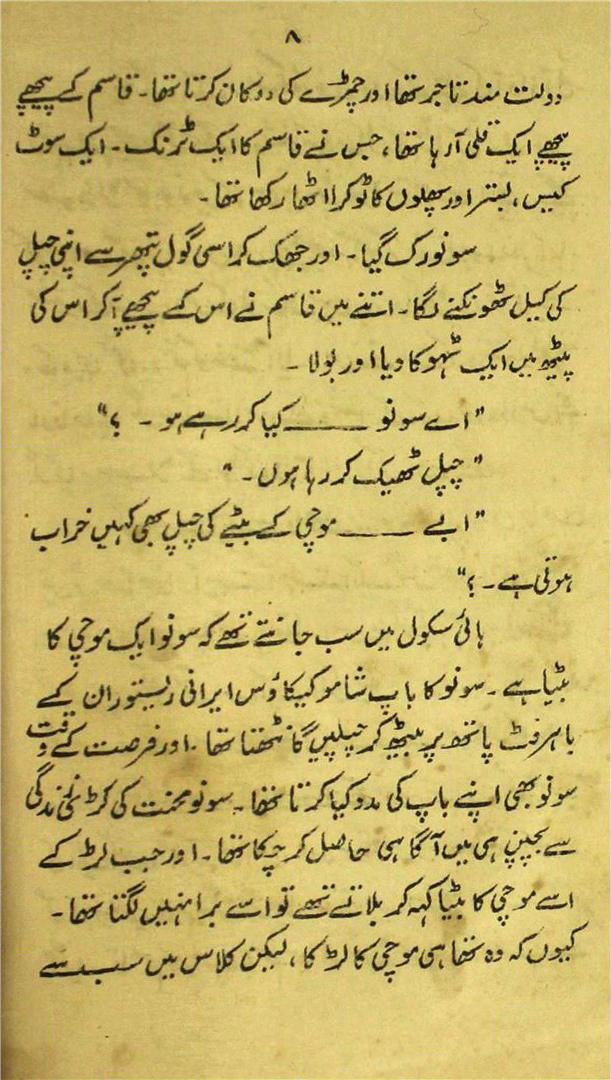 ۸
دولت مند تاجر تھا اور چمڑے کی دوکان کرتا تھا۔ قاسم کے پیچھے
پیچھے ایک قلی آ رہا تھا، جس نے قاسم کا ایک ٹرنک۔ ایک سوٹ
کیس، بستر اور پھلوں کا ٹوکرا اٹھا رکھا تھا۔
سونو رک گیا۔ اور جھک کر اسی گول پتھر سے اپنی چپل
کی کیل ٹھونکنے لگا۔ اتنے میں قاسم نے اس کے پیچھے آ کر اس کی
پیٹھ میں ایک ٹہوکا دیا اور بولا ۔
"اے سونو ــــــــ کیا کر رہے ہو ۔ ؟"
"چپل ٹھیک کر رہا ہوں۔"
"ابے ــــــــ موچی کے بیٹے کی چپل بھی کہیں خراب
ہوتی ہے ۔ ؟"
ہائی سکول میں سب جانتے تھے کہ سونو ایک موچی کا
بیٹا ہے۔ سونو کا باپ شامو کیکاؤس ایرانی ریستوران کے
باہر فٹ پاتھ پر بیٹھ کر چپلیں گانٹھتا تھا۔ اور فرصت کے وقت
سونو بھی اپنے باپ کی مدد کیا کرتا تھا۔ سونو محنت کی کڑی زندگی
سے بچپن ہی میں آگاہی حاصل کر چکا تھا۔ اور جب لڑکے
اسے موچی کا بیٹا کہہ کر بلاتے تھے تو اسے برا نہیں لگتا تھا۔
کیوں کہ وہ تھا ہی موچی کا لڑکا، لیکن کلاس میں سب سے